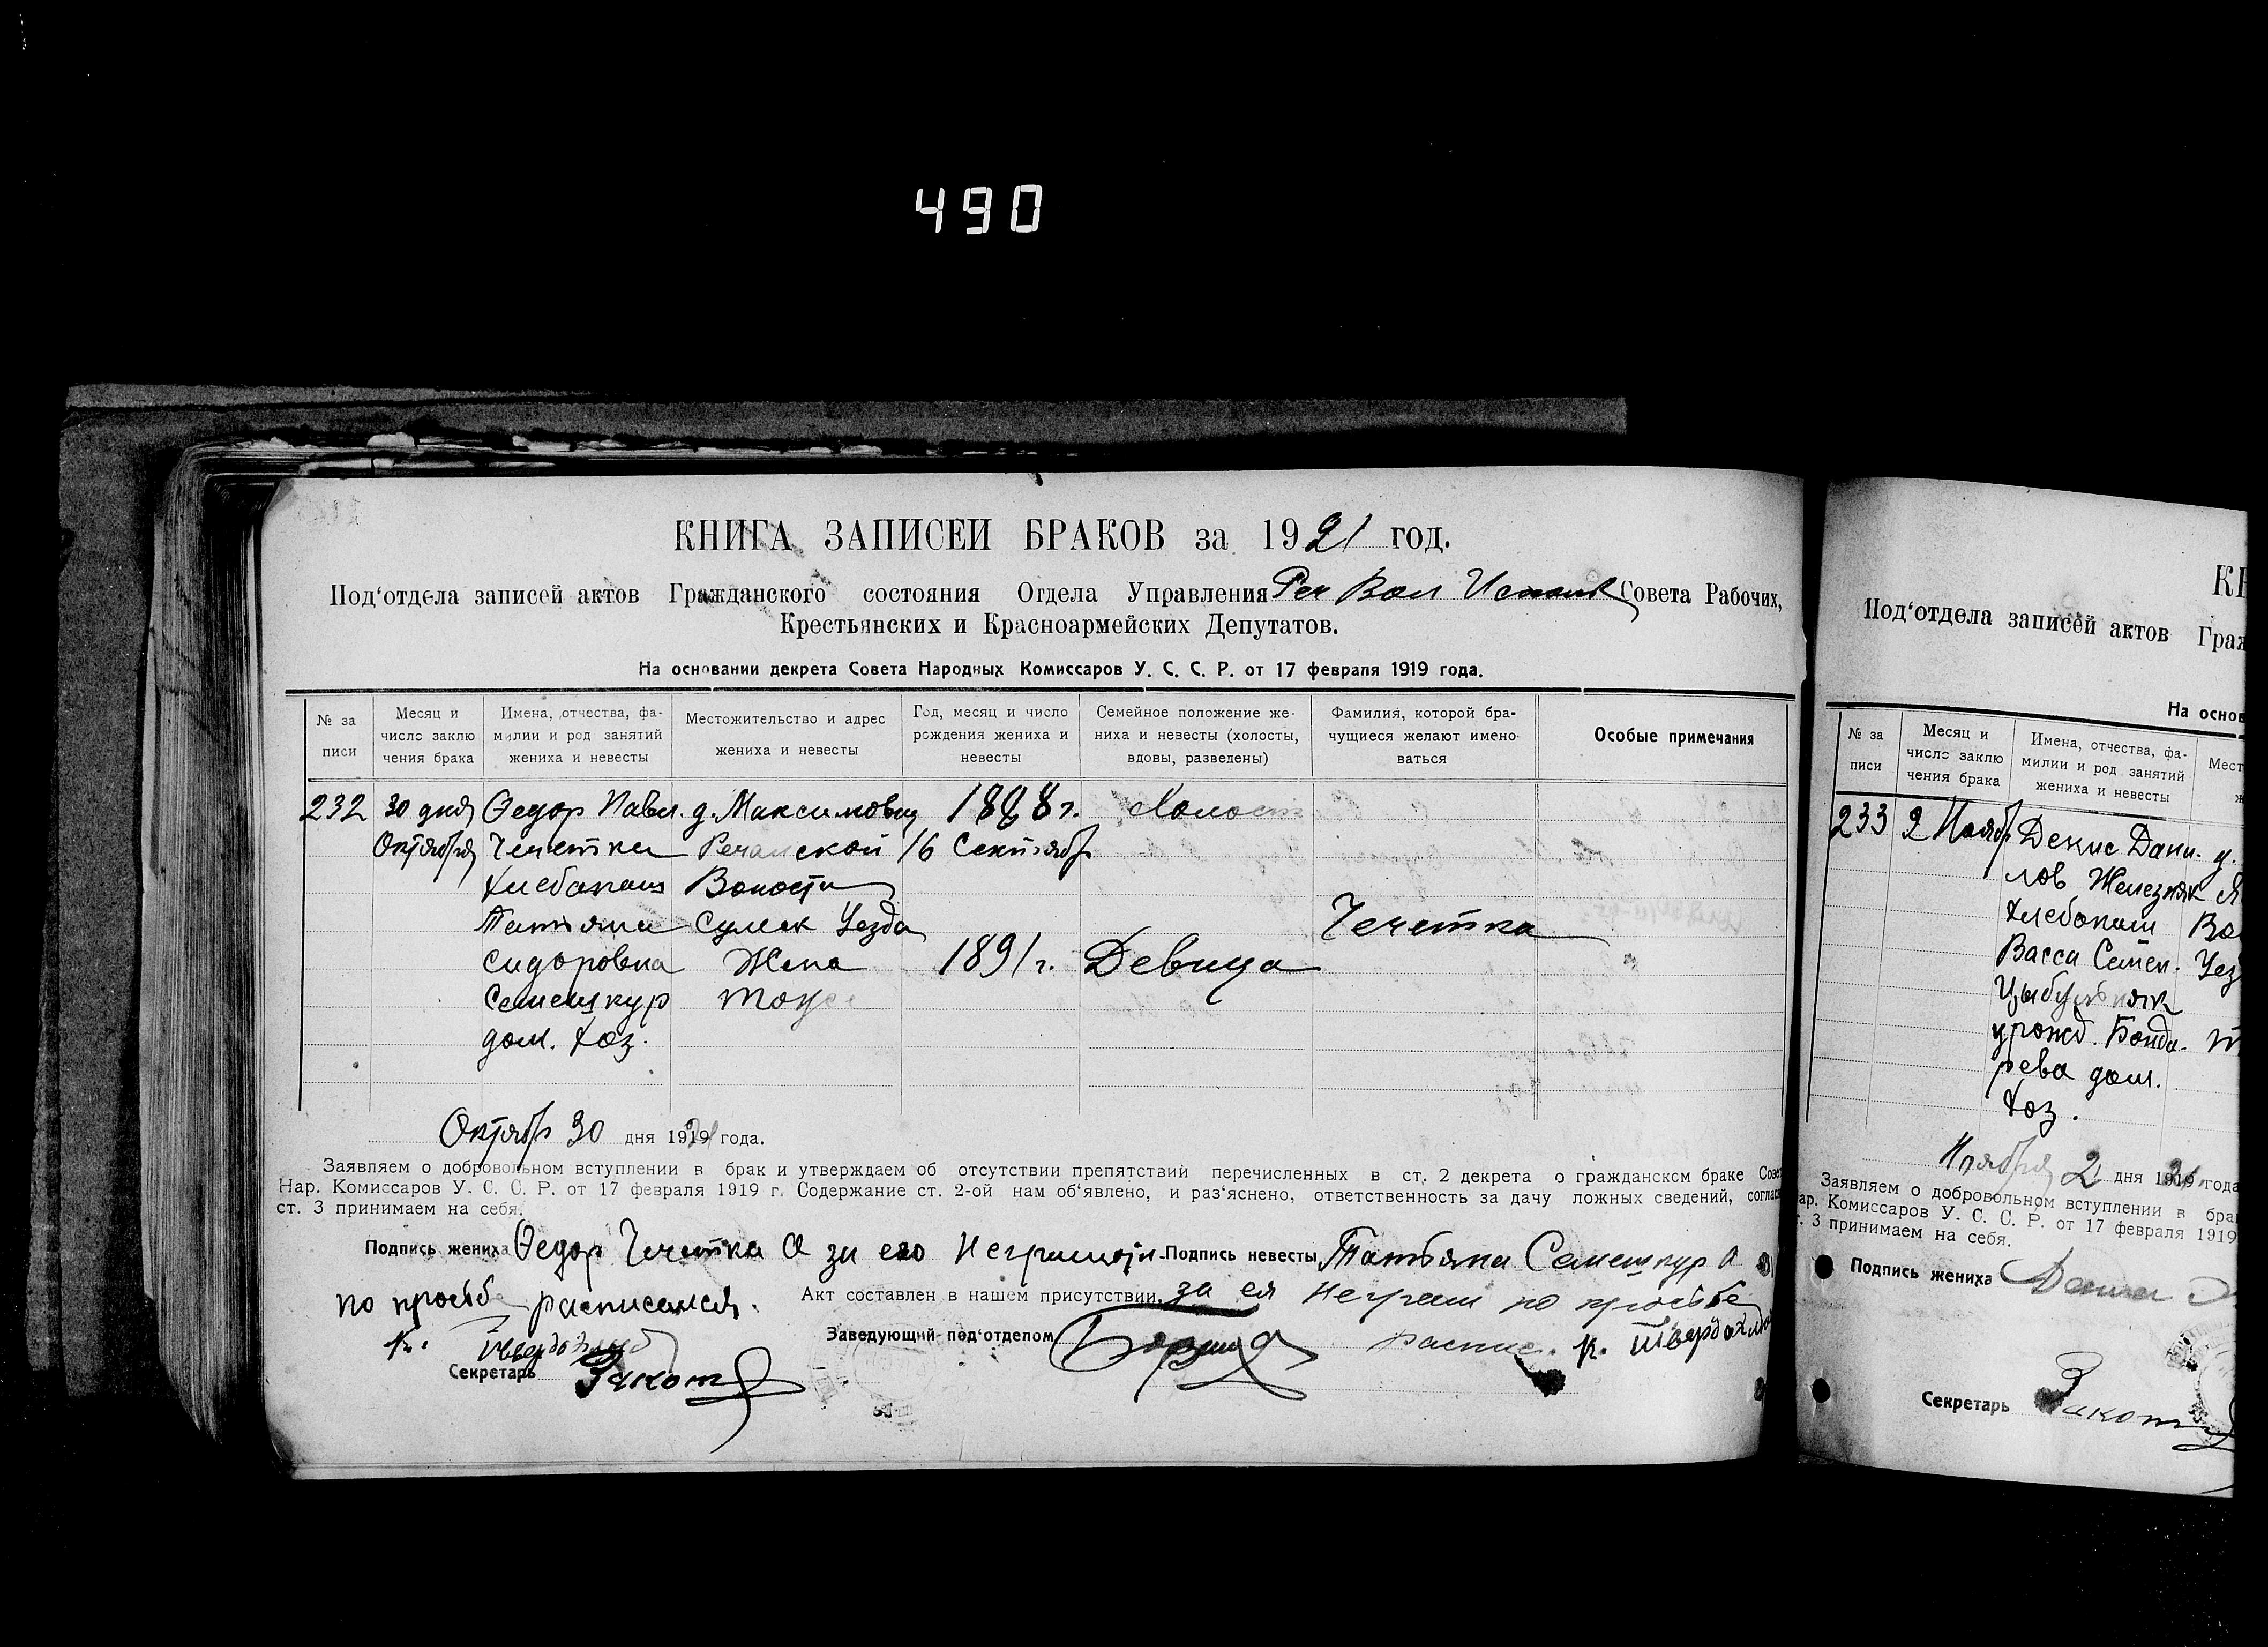 490
КНИГА ЗАПИСЕЙ БРАКОВ за 1921 год.
Под‘отдела записей актов Гражданского состояния Отдела Управления Реч Вол Исполк Совета Рабочих,
Крестьянских и Красноармейских Депутатов.
На основании декрета Совета Народных Комиссаров У. С. С. Р. от 17 февраля 1919 года.
№ за писи
Месяц и число заклю чения брака
Имена, отчества, фа- милии и род занятий жениха и невесты
Местожительство и адрес жениха и невесты
Год, месяц и число рождения жениха и невесты
Семейное положение же- ниха и невесты (холосты, вдовы, разведены)
Фамилия, которой бра- чущиеся желают имено- ваться
Особые примечания
232 30 дня Ѳедор Павл. д. Максимовщ 1888 г. Холост
Октября Чечетка Речанской 16 Сентябр
Хлебопаш Волости
Татьяна Сумск Уезда Чечетка
Сидоровна Жена 1891 г. Девица "
Семешкур тоже
дом. хоз.
Октябр 30 дня 1921 года.
Заявляем о добровольном вступлении в брак и утверждаем об отсутствии препятствий перечисленных в ст. 2 декрета о гражданском браке Сове
Нар. Комиссаров У. С. С. Р. от 17 февраля 1919 г. Содержание ст. 2-ой нам об‘явлено, и раз‘яснено, ответственность за дачу ложных сведений, соглас
ст. 3 принимаем на себя.
Подпись жениха Ѳедор Чечетка а за его Неграмотн. Подпись невесты Татьяна Семешкур а
по прозьбе расписался. Акт составлен в нашем присутствии. за ея Неграм по прозьбе
К. Твердохлеб Заведующий под‘отделом распис. К. Твердохлеб
Секретарь
КН
Под‘отдела записей актов Граж
На основ
№ за писи
Месяц и число заклю чения брака
Имена, отчества, фа- милии и род занятий жениха и невесты
Мест
233 2 Ноябр Денис Дани- д.
лов Железняк
Хлебопаш Во
Васса Семен. Уез
Цыбульняк
урожд. Бонда-
рева дом.
хоз.
Ноября 2 дня 1921 года
Заявляем о добровольном вступлении в бра
ар. Комиссаров У. С. С. Р. от 17 февраля 1919
т. 3 принимаем на себя.
Подпись жениха
Секретарь